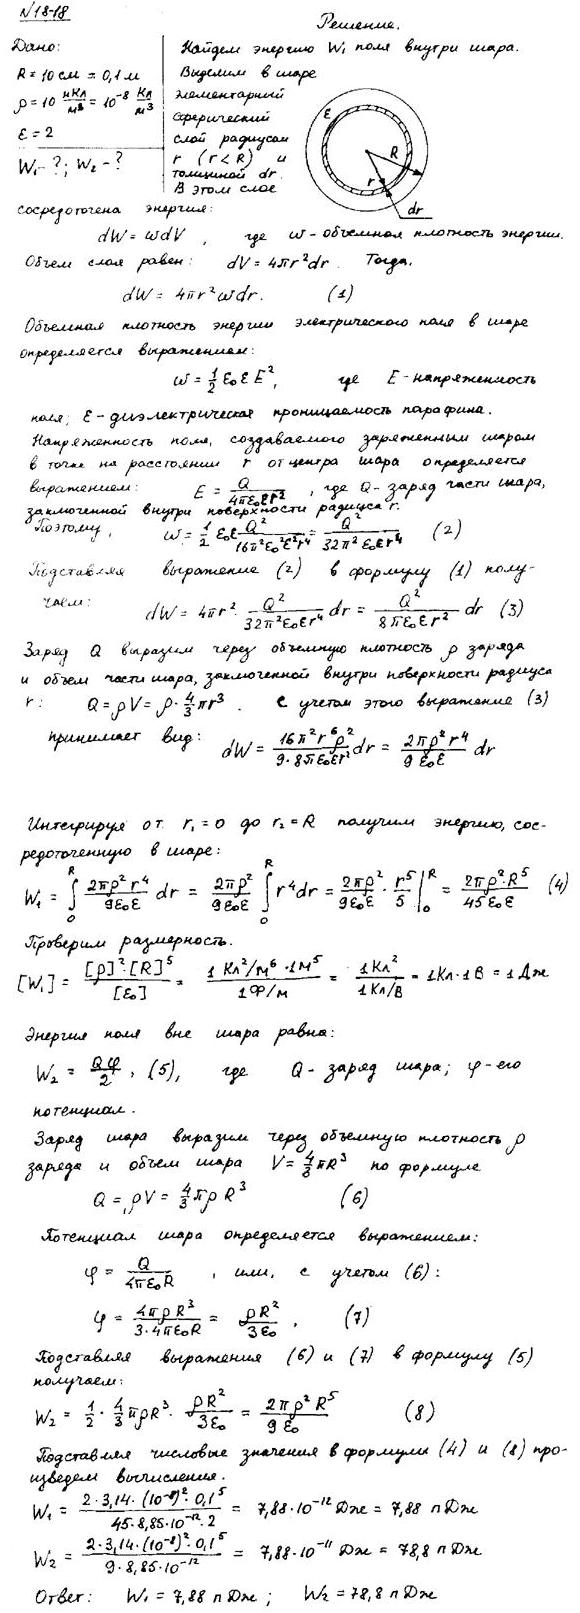 №18-18
Решение.
Дано:
R = 10 см = 0,1 м
ρ = 10 нКл/м³ = 10⁻⁸ Кл/м³
ε = 2
W₁ - ? ; W₂ - ?
Найдем энергию W₁ поля внутри шара.
Выделим в шаре
элементарный
сферический
слой радиусом
r (r < R) и
толщиной dr.
В этом слое
ε
R
r
dr
сосредоточена энергия:
dW = ωdV, где ω - объемная плотность энергии.
Объем слоя равен: dV = 4πr²dr. Тогда,
dW = 4πr²ωdr. (1)
Объемная плотность энергии электрического поля в шаре
определяется выражением:
ω = 1/2 ε₀εE², где E - напряженность
поля; ε - диэлектрическая проницаемость парафина.
Напряженность поля, создаваемого заряженным шаром
в точке на расстоянии r от центра шара определяется
выражением: E = Q/4πε₀εr², где Q - заряд части шара,
заключенной внутри поверхности радиуса r.
Поэтому, ω = 1/2 ε₀ε Q²/16π²ε₀²ε²r⁴ = Q²/32π²ε₀εr⁴ (2)
Подставляя выражение (2) в формулу (1) полу-
чаем: dW = 4πr² · Q²/32π²ε₀εr⁴ dr = Q²/8πε₀εr² dr (3)
Заряд Q выразим через объемную плотность ρ заряда
и объем части шара, заключенной внутри поверхности радиуса
r: Q = ρV = ρ · 4/3 πr³. С учетом этого выражение (3)
принимает вид: dW = 16π²r⁶ρ²/9·8πε₀εr² dr = 2πρ²r⁴/9ε₀ε dr
Интегрируя от r₁ = 0 до r₂ = R получим энергию, сос-
редоточенную в шаре:
W₁ = ∫₀ᴿ 2πρ²r⁴/9ε₀ε dr = 2πρ²/9ε₀ε ∫₀ᴿ r⁴dr = 2πρ²/9ε₀ε · r⁵/5 |₀ᴿ = 2πρ²·R⁵/45ε₀ε (4)
Проверим размерность.
[W₁] = [ρ]²·[R]⁵/[ε₀] = 1 Кл²/м⁶ · 1м⁵/1Ф/м = 1Кл²/1Кл/В = 1Кл·1В = 1Дж
Энергия поля вне шара равна:
W₂ = Qφ/2, (5), где Q - заряд шара; φ - его
потенциал.
Заряд шара выразим через объемную плотность ρ
заряда и объем шара V = 4/3 πR³ по формуле
Q = ρV = 4/3 πρR³ (6)
Потенциал шара определяется выражением:
φ = Q/4πε₀R, или, с учетом (6):
φ = 4πρR³/3·4πε₀R = ρR²/3ε₀, (7)
Подставляя выражения (6) и (7) в формулу (5)
получаем:
W₂ = 1/2 · 4/3 πρR³ · ρR²/3ε₀ = 2πρ²R⁵/9ε₀ (8)
Подставляя числовые значения в формулы (4) и (8) про-
изведем вычисления.
W₁ = 2·3,14·(10⁻⁸)²·0,1⁵/45·8,85·10⁻¹²·2 = 7,88·10⁻¹² Дж = 7,88 пДж
W₂ = 2·3,14·(10⁻⁸)²·0,1⁵/9·8,85·10⁻¹² = 7,88·10⁻¹¹ Дж = 78,8 пДж
Ответ: W₁ = 7,88 пДж; W₂ = 78,8 пДж